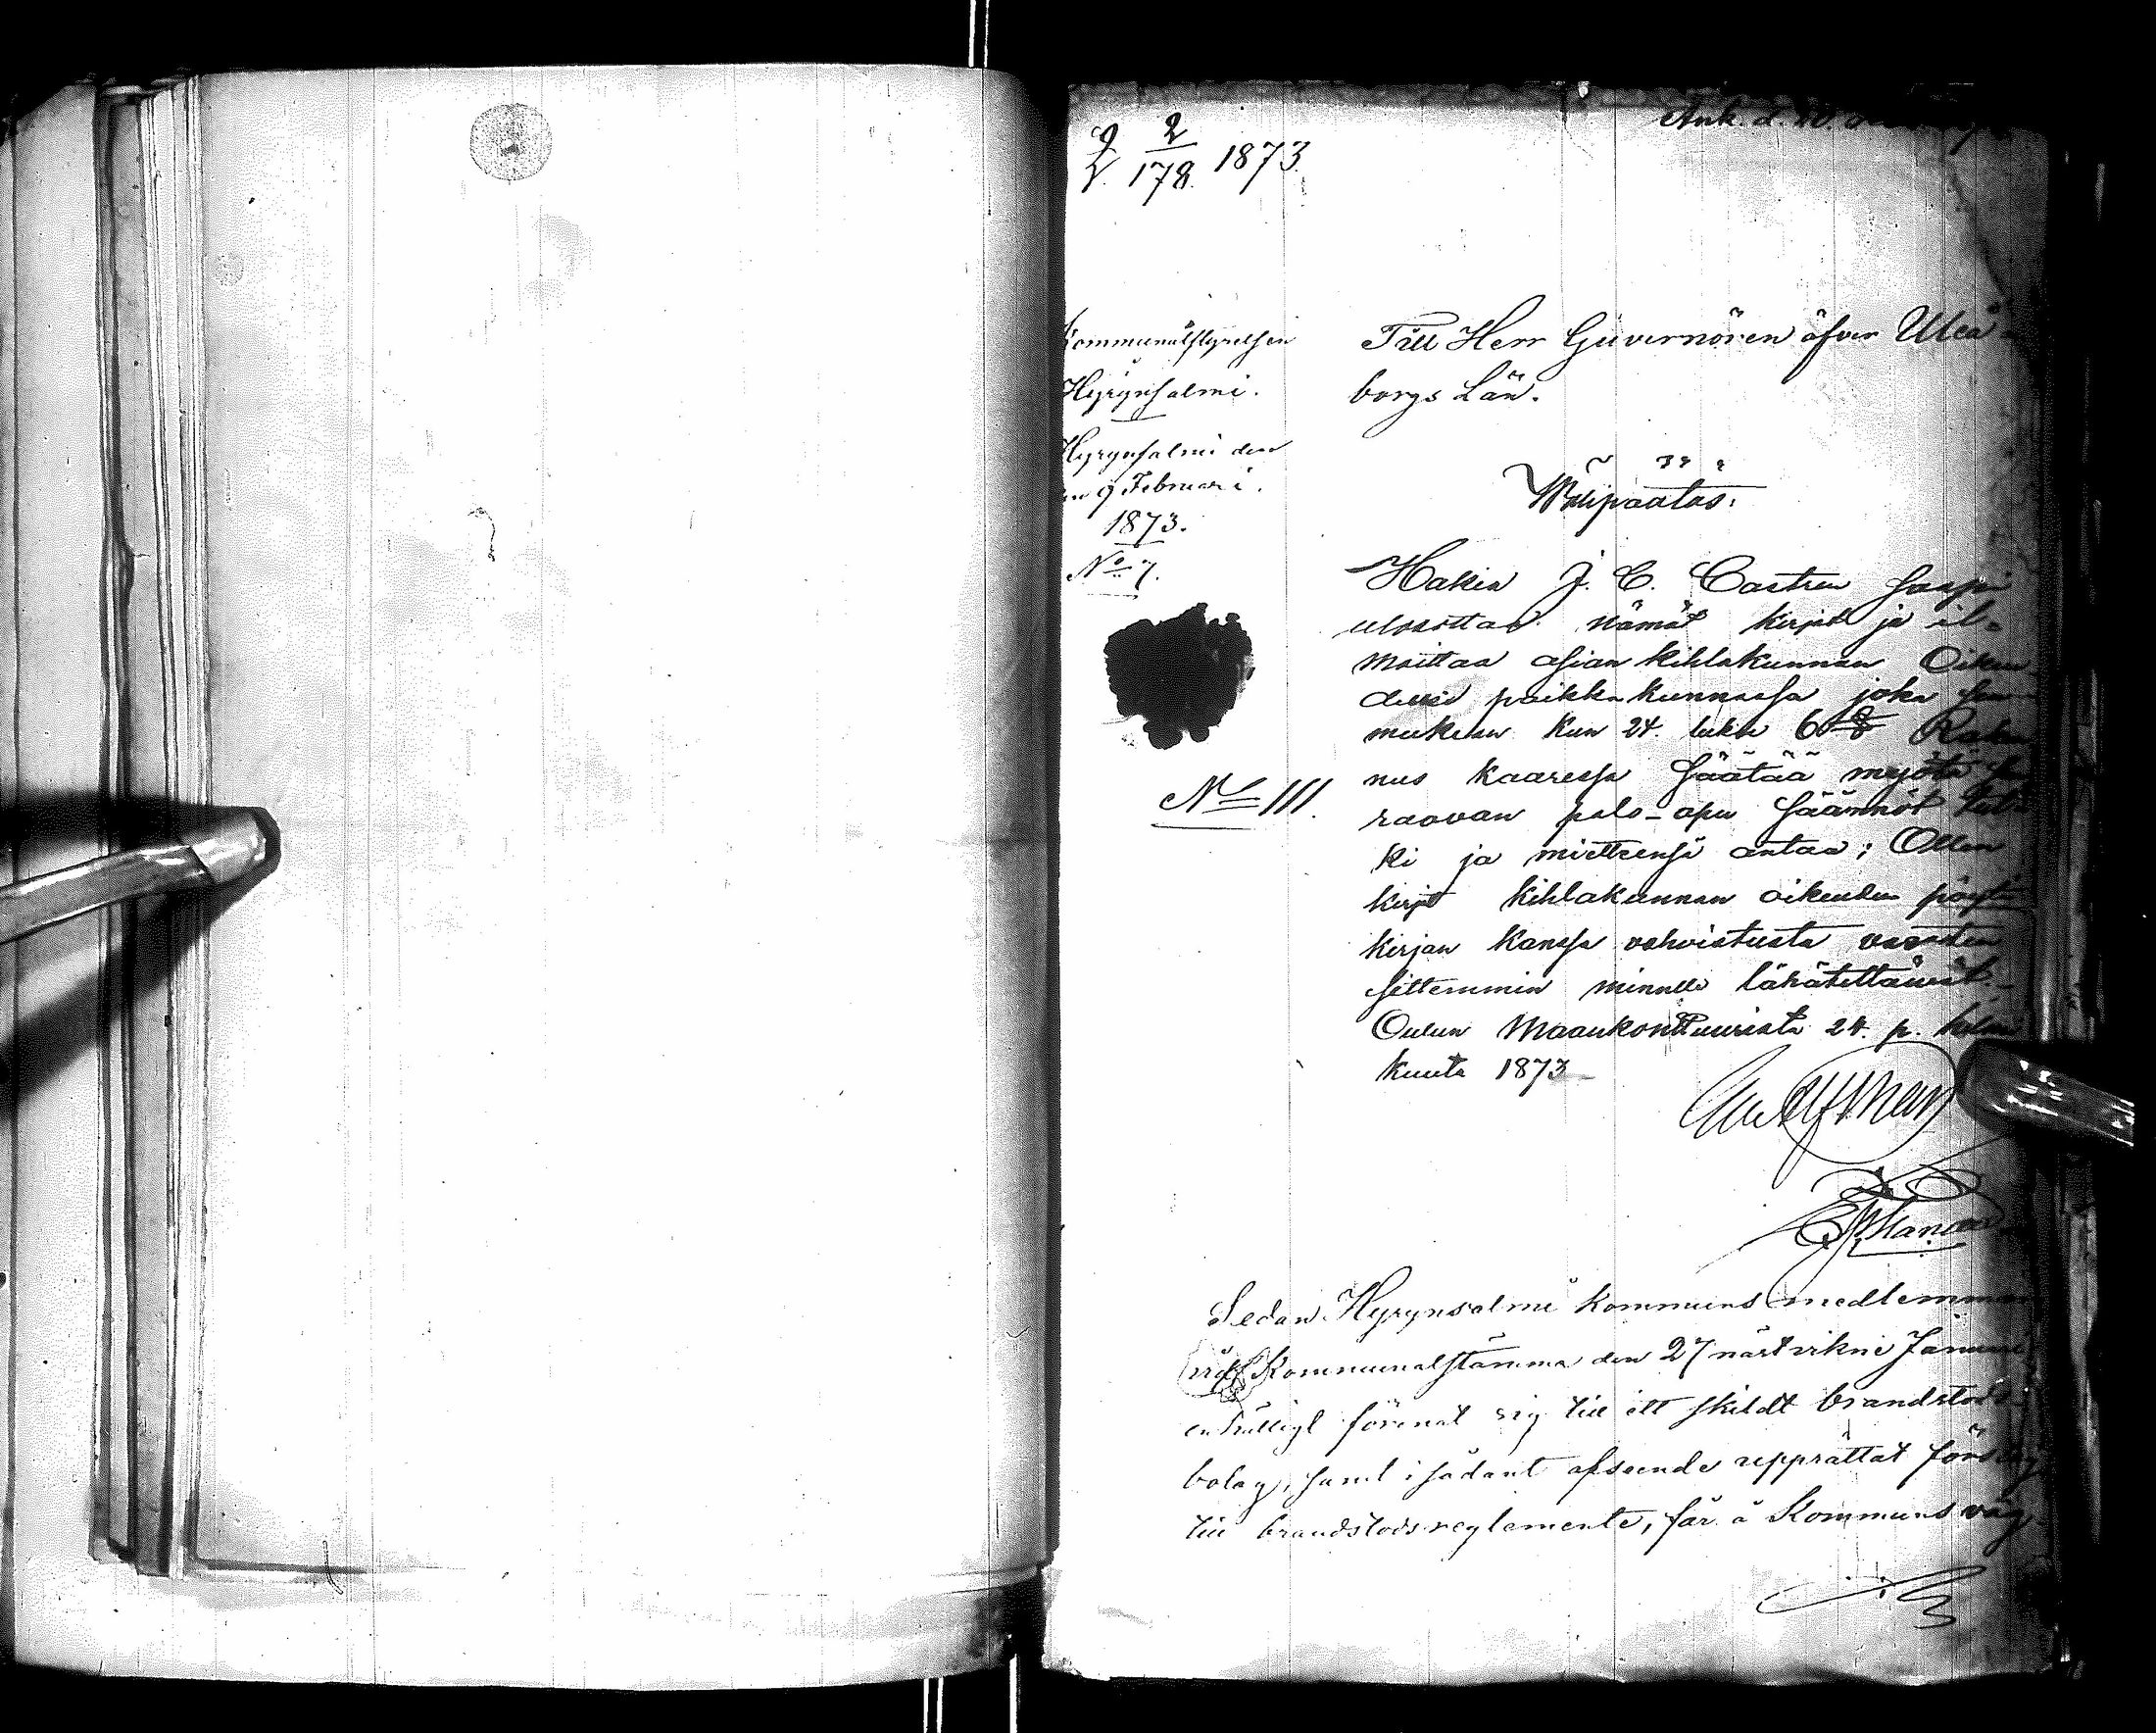 Ank. d. 20.
2 2
V. 178. 1873.
Kommunalstyrelsen
Hyrynsalmi.
Hyrynsalmi den
9 Februari.
1873.
No 7.
No 111.
Till Herr Guvernören öfver Uleå-
borgs Län.
Välipäätös:
Hakia J. C. Castren saapi
ulosottaa nämät kirjat ja il-
moittaa asian kihlakunnan Oikeu
dessa paikkakunnassa joka sen
mukaan kun 24. luku 6 § Raken
nus kaaressa säätää myötä
raavan palo-apu säännöt tut
ki ja mietteensä antaa; Ollen
kirjat kihlakunnan oikeuden pöytä
kirjan kanssa vahvistusta varten
sittemmin minulle lähätettävät.
Oulun Maankonttuurista 24. p. helmi
kuuta 1873
Sedan Hyrynsalmi kommuns medlemmar
vid Kommunalstämma den 27 nästvikne Januari
enhälligt förenat sig till ett skildt brandstods-
bolag, samt i sådant afseende upprättat förslag
till brandstodsreglemente, får å Kommuns väg.